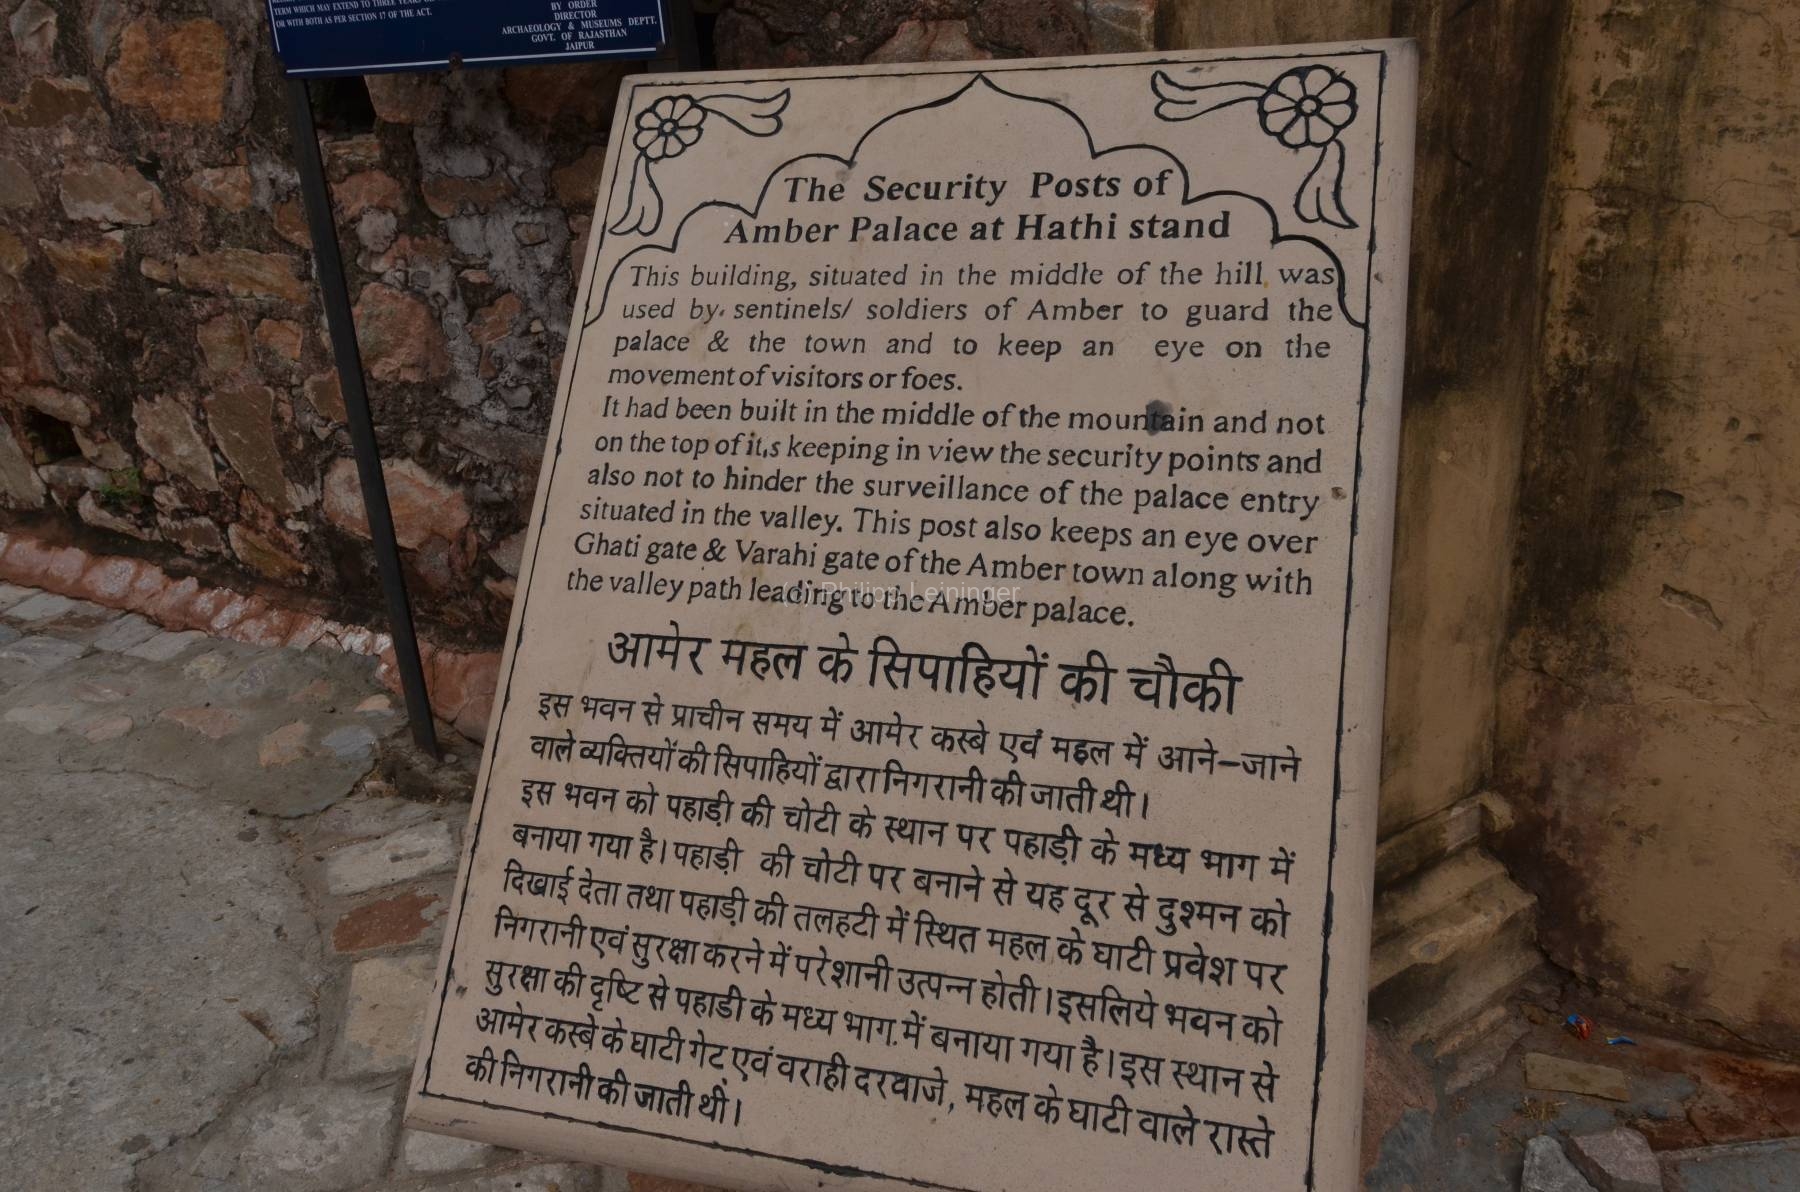 TERM WHICH MAY EXTEND TO THREE YEARS
OR WITH BOTH AS PER SECTION 17 OF THE ACT.
BY ORDER
DIRECTOR
ARCHAEOLOGY & MUSEUMS DEPTT.
GOVT. OF RAJASTHAN
JAIPUR
The Security Posts of
Amber Palace at Hathi stand
This building, situated in the middle of the hill, was
used by sentinels/ soldiers of Amber to guard the
palace & the town and to keep an eye on the
movement of visitors or foes.
It had been built in the middle of the mountain and not
on the top of it,s keeping in view the security points and
also not to hinder the surveillance of the palace entry
situated in the valley. This post also keeps an eye over
Ghati gate & Varahi gate of the Amber town along with
the valley path leading to the Amber palace.
(c) Philipp Leininger
आमेर महल के सिपाहियों की चौकी
इस भवन से प्राचीन समय में आमेर कस्बे एवं महल में आने–जाने
वाले व्यक्तियों की सिपाहियों द्वारा निगरानी की जाती थी।
इस भवन को पहाड़ी की चोटी के स्थान पर पहाड़ी के मध्य भाग में
बनाया गया है। पहाड़ी की चोटी पर बनाने से यह दूर से दुश्मन को
दिखाई देता तथा पहाड़ी की तलहटी में स्थित महल के घाटी प्रवेश पर
निगरानी एवं सुरक्षा करने में परेशानी उत्पन्न होती। इसलिये भवन को
सुरक्षा की दृष्टि से पहाडी के मध्य भाग में बनाया गया है। इस स्थान से
आमेर कस्बे के घाटी गेट एवं वराही दरवाजे, महल के घाटी वाले रास्ते
की निगरानी की जाती थी।